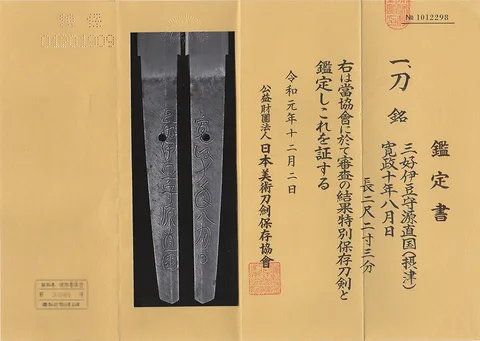 № 1012298
鑑定書
一、刀 銘
三好伊豆守源直国(摂津)
寛政十年八月日
長二尺二寸三分
右は當協會に於て審査の結果特別保存刀剣と
鑑定しこれを証する
令和元年十二月二日
公益財團法人日本美術刀劍保存協會